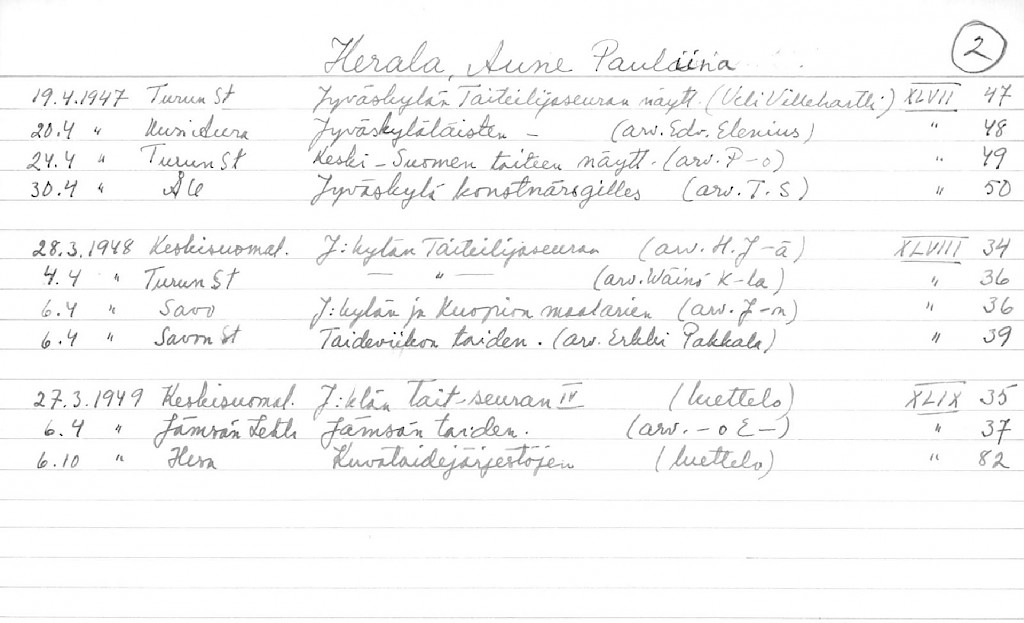 2
Herala, Aune Pauliina
19.4.1947 Turun St Jyväskylän Taiteilijaseuran näytt. (Veli Villehartti) XLVII 47
20.4 " Uusi Aura Jyväskyläläisten — (arv. Edv. Elenius) " 48
24.4 " Turun St Keski-Suomen taiteen näytt. (arv. P-o) " 49
30.4 " ÅU Jyväskylä konstnärsgilles (arv. T.S) " 50
28.3.1948 Keskisuomal. J:kylän Taiteilijaseuran (arv. H.J-ä) XLVIII 34
4.4 " Turun St — " — (arv. Wäinö K-la) " 36
6.4 " Savo J:kylän ja Kuopion maalarien (arv. J-n) " 36
6.4 " Savon St Taideviikon taiden. (arv. Erkki Pakkala) " 39
27.3.1949 Keskisuomal. J:klän tait-seuran IV (luettelo) XLIX 35
6.4 " Jämsän Lehti Jämsän taiden. (arv. -o E-) " 37
6.10 " Kuvataidejärjestöjen (luettelo) " 82